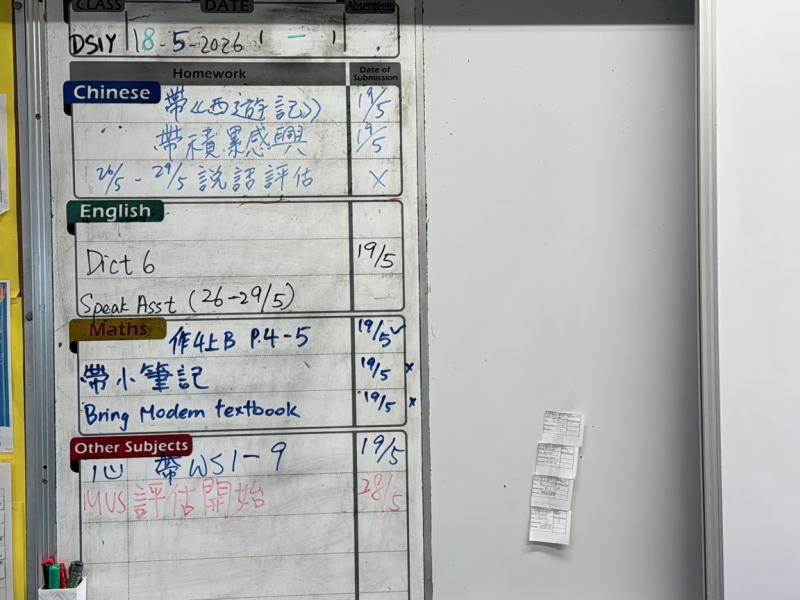 CLASS DATE Absentees
DSIY 18-5-2026 1 - 1
Homework Date of Submission
Chinese
帶《西遊記》 19/5
帶積累感興 19/5
26/5 - 29/5 說話評估 X
English
Dict 6 19/5
Speak Asst (26-29/5) —
Maths
作4上B P.4-5 19/5 ✓
帶小筆記 19/5 x
Bring Modern textbook 19/5 x
Other Subjects
心 帶WS1-9 19/5
MUS 評估開始 28/5